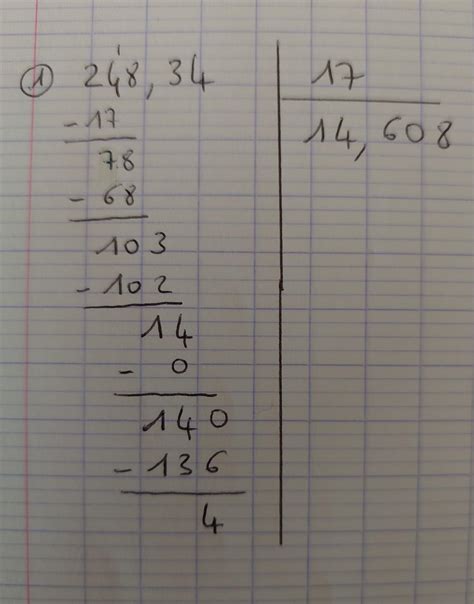 ① 248,34 17
-17 14,608
78
- 68
103
- 102
14
- 0
140
- 136
4